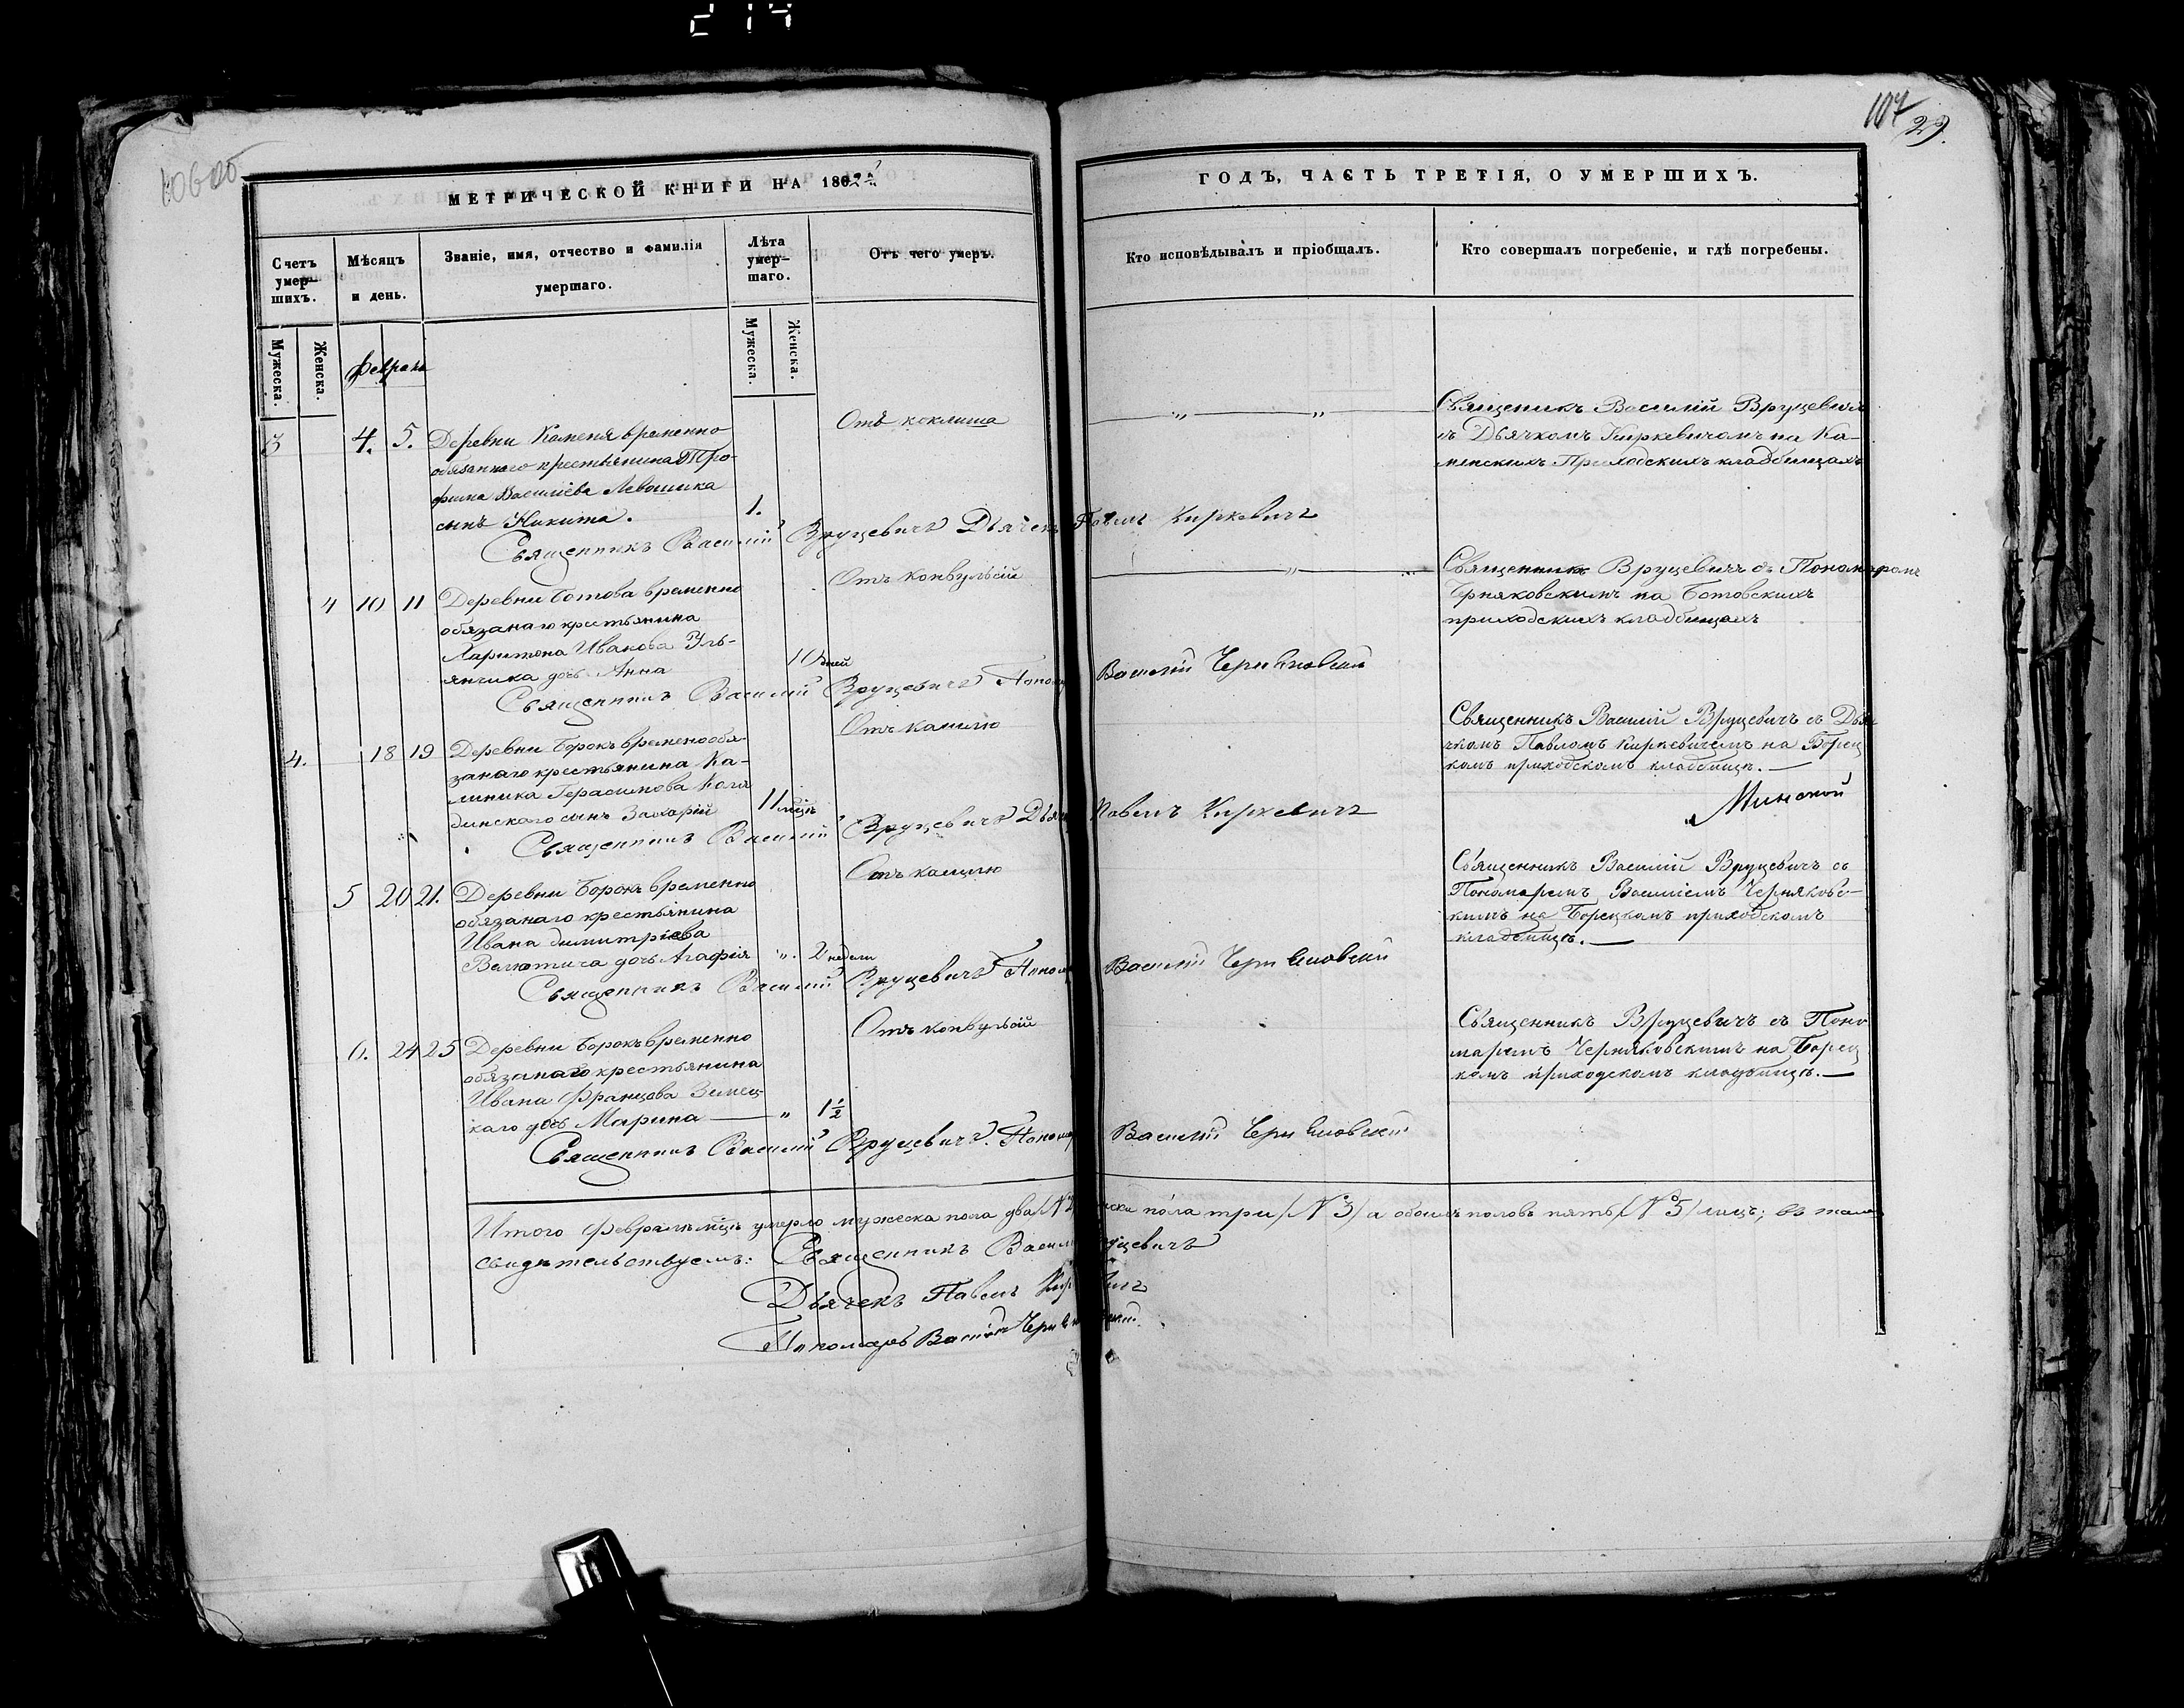 214
107
29.
МЕТРИЧЕСКОЙ КНИГИ НА 186
ГОДЪ, ЧАСТЬ ТРЕТІЯ, О УМЕРШИХЪ.
Счетъ умер-шихъ.
Мѣсяцъ и день.
Званіе, имя, отчество и фамилія умершаго.
Лѣта умер-шаго.
Отъ чего умеръ.
Кто исповѣдывалъ и пріобщалъ.
Кто совершалъ погребеніе, и гдѣ погребены.
Мужеска.
Женска.
Мужеска.
Женска.
Февраль
3 4. 5. Деревни Каменя временно
обязаннаго крестьянина Тро-
фима Василіева Левошика
сынъ Никита. 1.
Отъ коклиша
Священникъ Василій Вруцевичъ
съ Дьячкомъ Киркевичомъ на Ка-
менскихъ Приходскихъ кладбищахъ
Священникъ Василій Вруцевичъ Дьячекъ Павелъ Киркевичъ
4 10 11 Деревни Ботова временно
обязанаго крестьянина
Харитона Ивакова Уль-
янчика дочь Анна 10 дней
Отъ конвульсій
Священникъ Вруцевичъ съ Пономаромъ
Черняковскимъ на Ботовскихъ
приходскихъ кладбищахъ
Священникъ Василій Вруцевичъ Пономарь Василій Черняковскій
4. 18 19 Деревни Борокъ временообя-
занаго крестьянина Ка-
линика Герасимова
динскаго сынъ Захарій 11 мцъ
Отъ кашлю
Священникъ Василій Вруцевичъ съ Дья-
чкомъ Павломъ Киркевичемъ на Борец
комъ приходскомъ кладбищѣ.
Священникъ Василій Вруцевичъ Дьячекъ Павелъ Киркевичъ
Минской
5 20 21. Деревни Борокъ временно
обязанаго крестьянина
Ивана Димитріева
дочь Агафія ". 2 недели
Отъ кашлю
Священникъ Василій Вруцевичъ съ
Пономаремъ Василіемъ Черняковс-
кимъ на Борецкомъ приходскомъ
кладбищѣ.
Священникъ Василій Вруцевичъ Пономарь Василій Черняковскій
6. 24 25 Деревни Борокъ временно
обязанаго крестьянина
Ивана Францова
каго дочь Марина " 1½
Отъ конвульсій
Священникъ Вруцевичъ съ Поно
маремъ Черняковскимъ на Борец
комъ приходскомъ кладъбищѣ.
Священникъ Василій Вруцевичъ. Пономарь Василій Черняковскій
Итого Февралѣ мцѣ умерло мужеска пола два /№ 2 нска пола три /№ 3/ а обоихъ половъ пять /№ 5/ лицъ; въ томъ
свидѣтельствуемъ: Священникъ Васил уцевичъ
Дьячекъ Павелъ Кир вичъ
Пономарь Василій Черняковскій.